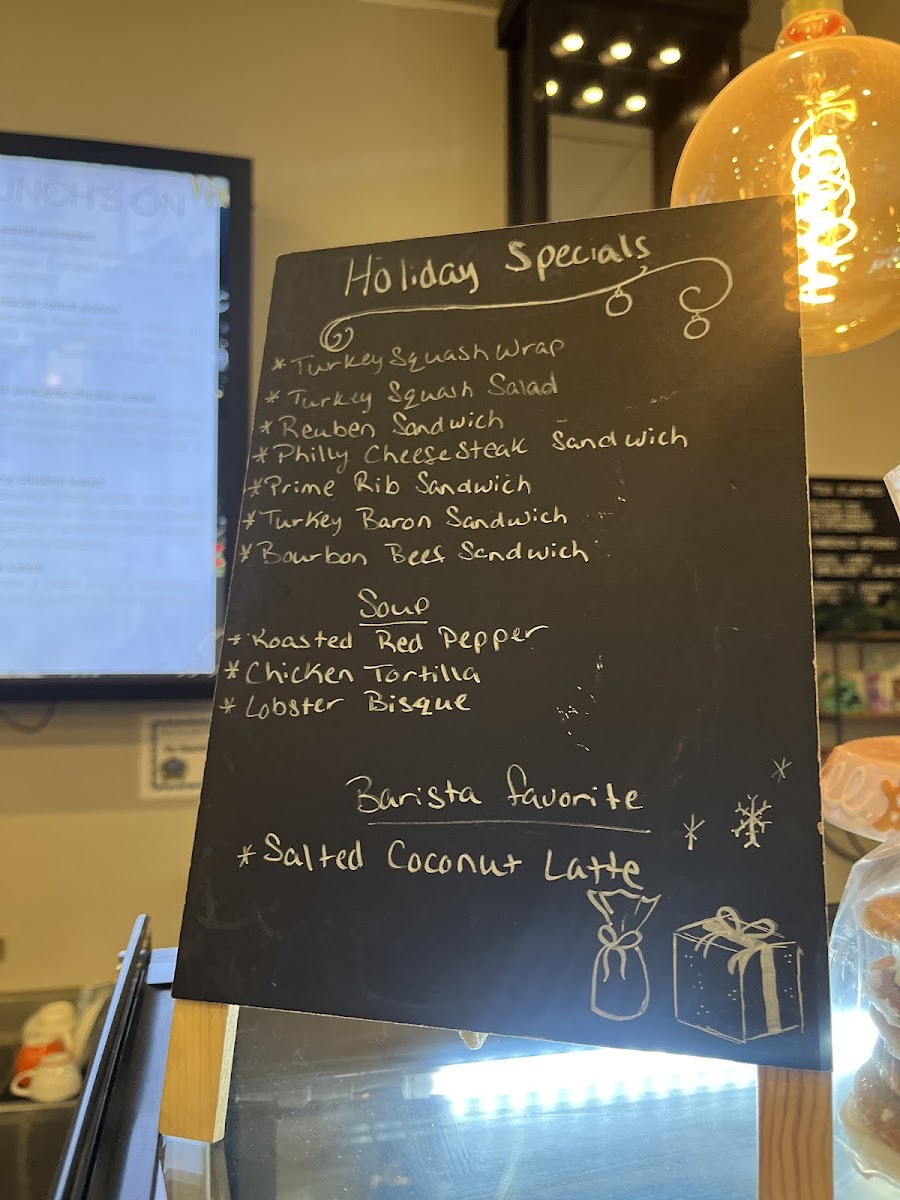 UNCH'S ON
Holiday Specials
* Turkey Squash Wrap
* Turkey Squash Salad
* Reuben Sandwich
* Philly CheeseSteak Sandwich
* Prime Rib Sandwich
* Turkey Baron Sandwich
* Bourbon Beef Sandwich
Soup
* Roasted Red Pepper
* Chicken Tortilla
* Lobster Bisque
Barista favorite
* Salted Coconut Latte